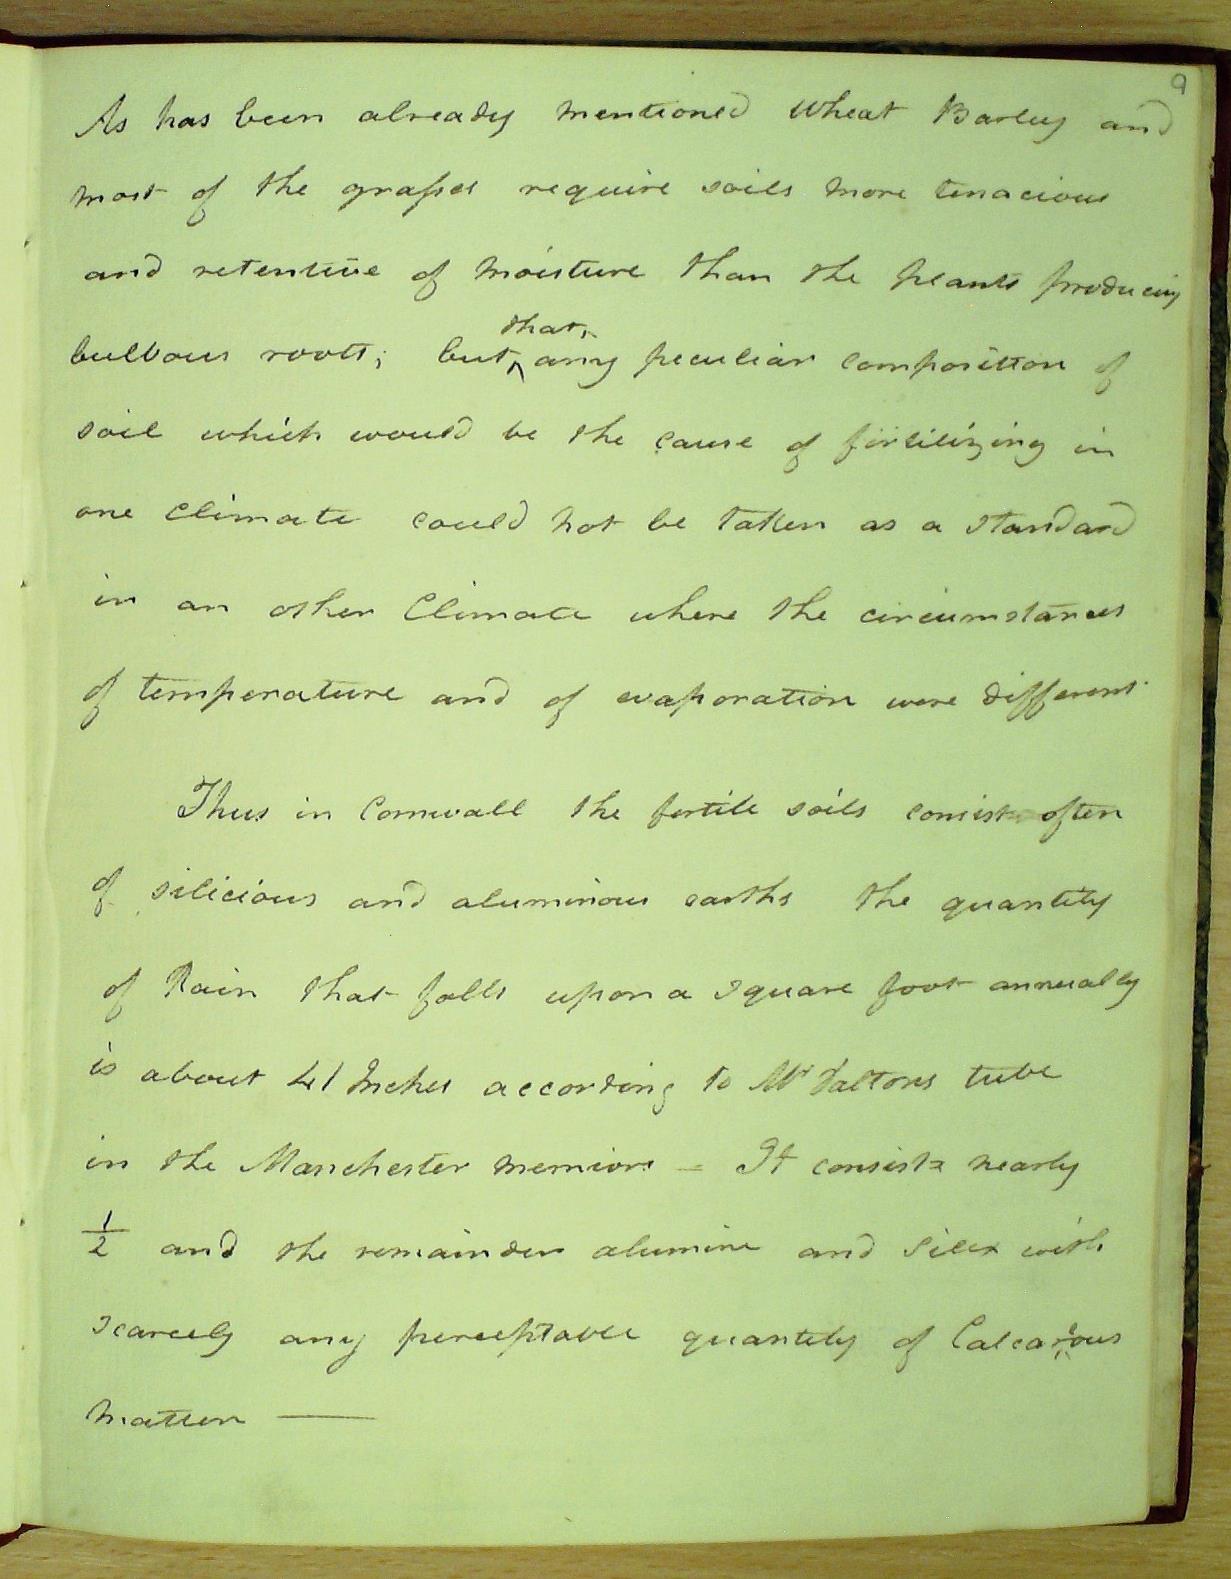 9
As has been already mentioned Wheat Barley and
most of the grasses require soils more tenacious
and retentive of moisture than the plants producing
that
bulbous roots; but ^ any peculiar composition of
soil which would be the cause of fertilizing in
one Climate could not be taken as a standard
in an other Climate where the circumstances
of temperature and of evaporation were different
Thus in Cornwall the fertile soils consist often
of silicious and aluminous earths the quantity
of Rain that falls upon a square foot annually
is about 41 Inches according to Mr Daltons tube
in the Manchester memiors = It consists nearly
1/2 and the remainder alumine and Silex with
scarcely any perceptable quantity of Calcareous
matter —